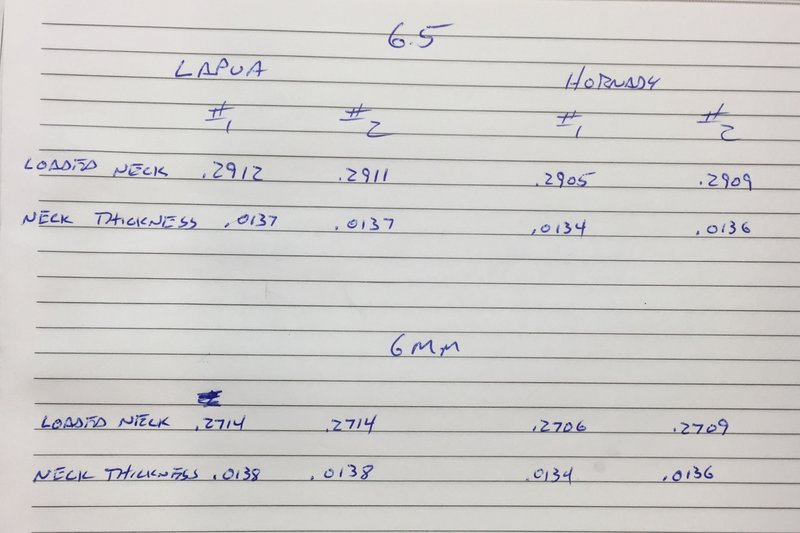 6.5
LAPUA HORNADY
#1 #2 #1 #2
LOADED NECK .2912 .2911 .2905 .2909
NECK THICKNESS .0137 .0137 .0134 .0136
6MM
LOADED NECK .2714 .2714 .2706 .2709
NECK THICKNESS .0138 .0138 .0134 .0136